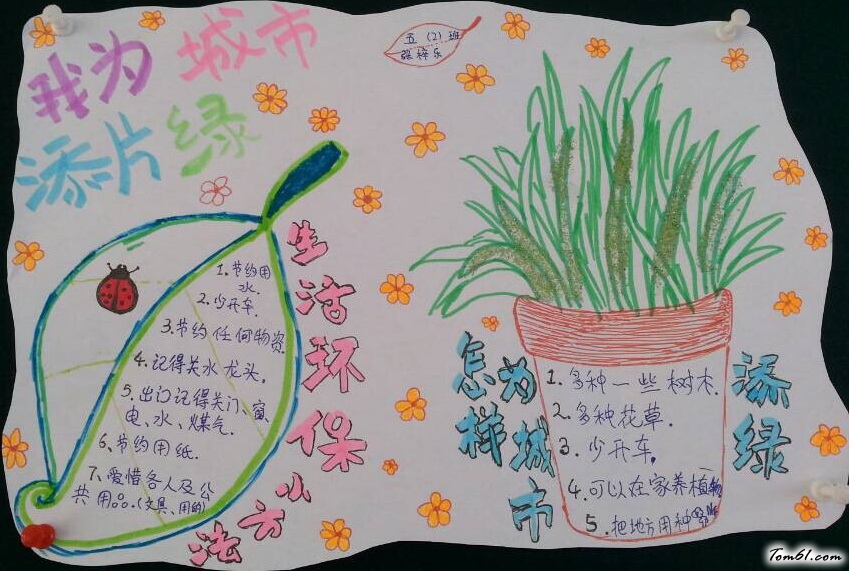 我为城市
添片绿
五(2)班
生活环保小方法
1.节约用
水.
2.少开车.
3.节约任何物资
4.记得关水龙头.
5.出门记得关门、窗、
电、水、煤气.
6.节约用纸.
7.爱惜各人及公
共用品.(文具、用的)
怎样为城市添绿
1.多种一些树木.
2.多种花草.
3.少开车.
4.可以在家养植物
5.把地方用种
Tom61.com